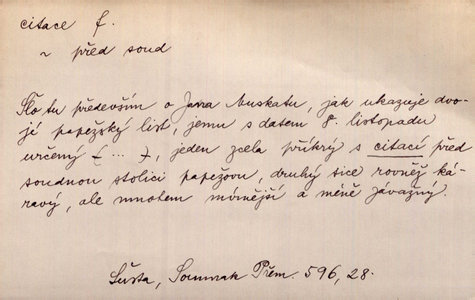 citace f.
~ před soud
Šlo tu především o Jana Muskatu, jak ukazuje dvo-
jí papežský list, jemu s datem 8. listopadu
určený (...), jeden zcela příkrý s citací před
soudnou stolici papežovu, druhý sice rovněž ká-
ravý, ale mnohem mírnější a méně závažný.
Šusta, Soumrak Přem. 596, 28.